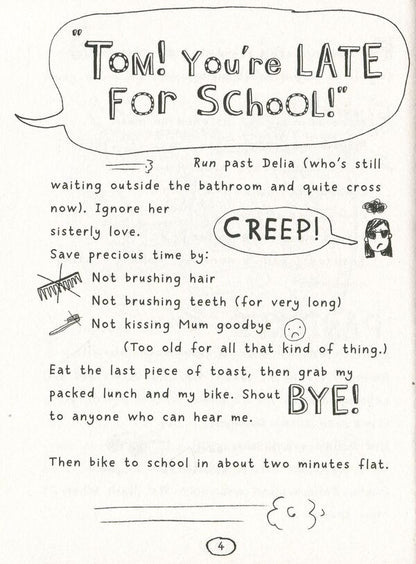 "TOM! You're LATE
FOR SCHOOL!"
Run past Delia (who's still
waiting outside the bathroom and quite cross
now). Ignore her
sisterly love.
CREEP!
Save precious time by:
Not brushing hair
Not brushing teeth (for very long)
Not kissing Mum goodbye
(Too old for all that kind of thing.)
Eat the last piece of toast, then grab my
packed lunch and my bike. Shout BYE!
to anyone who can hear me.
Then bike to school in about two minutes flat.
4